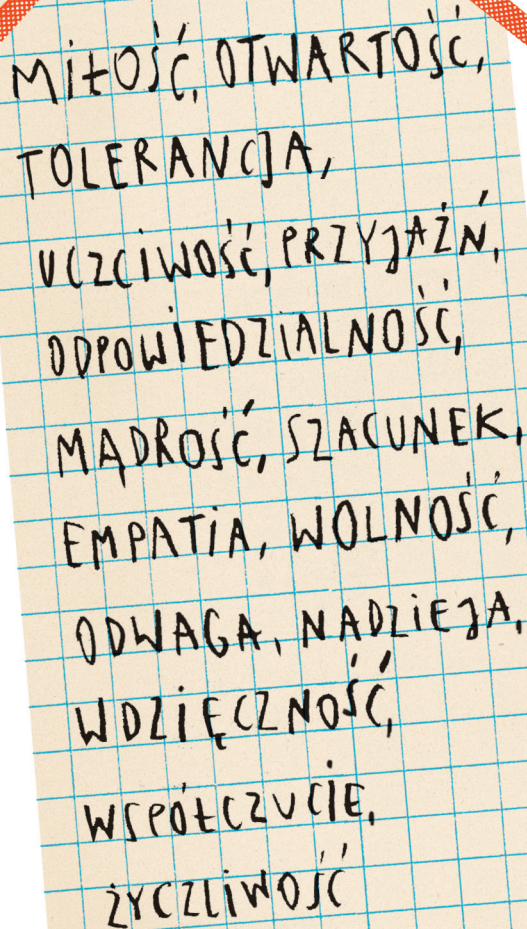 MiŁOŚĆ, OTWARTOŚĆ,
TOLERANCJA,
UCZCiWOŚĆ, PRZYJAŹŃ,
ODPOWIEDZiALNOŚĆ,
MĄDROŚĆ, SZACUNEK,
EMPATiA, WOLNOŚĆ,
ODWAGA, NADZiEJA,
WDZiĘCZNOŚĆ,
WSPÓŁCZUCIE,
ŻYCZLiWOŚĆ